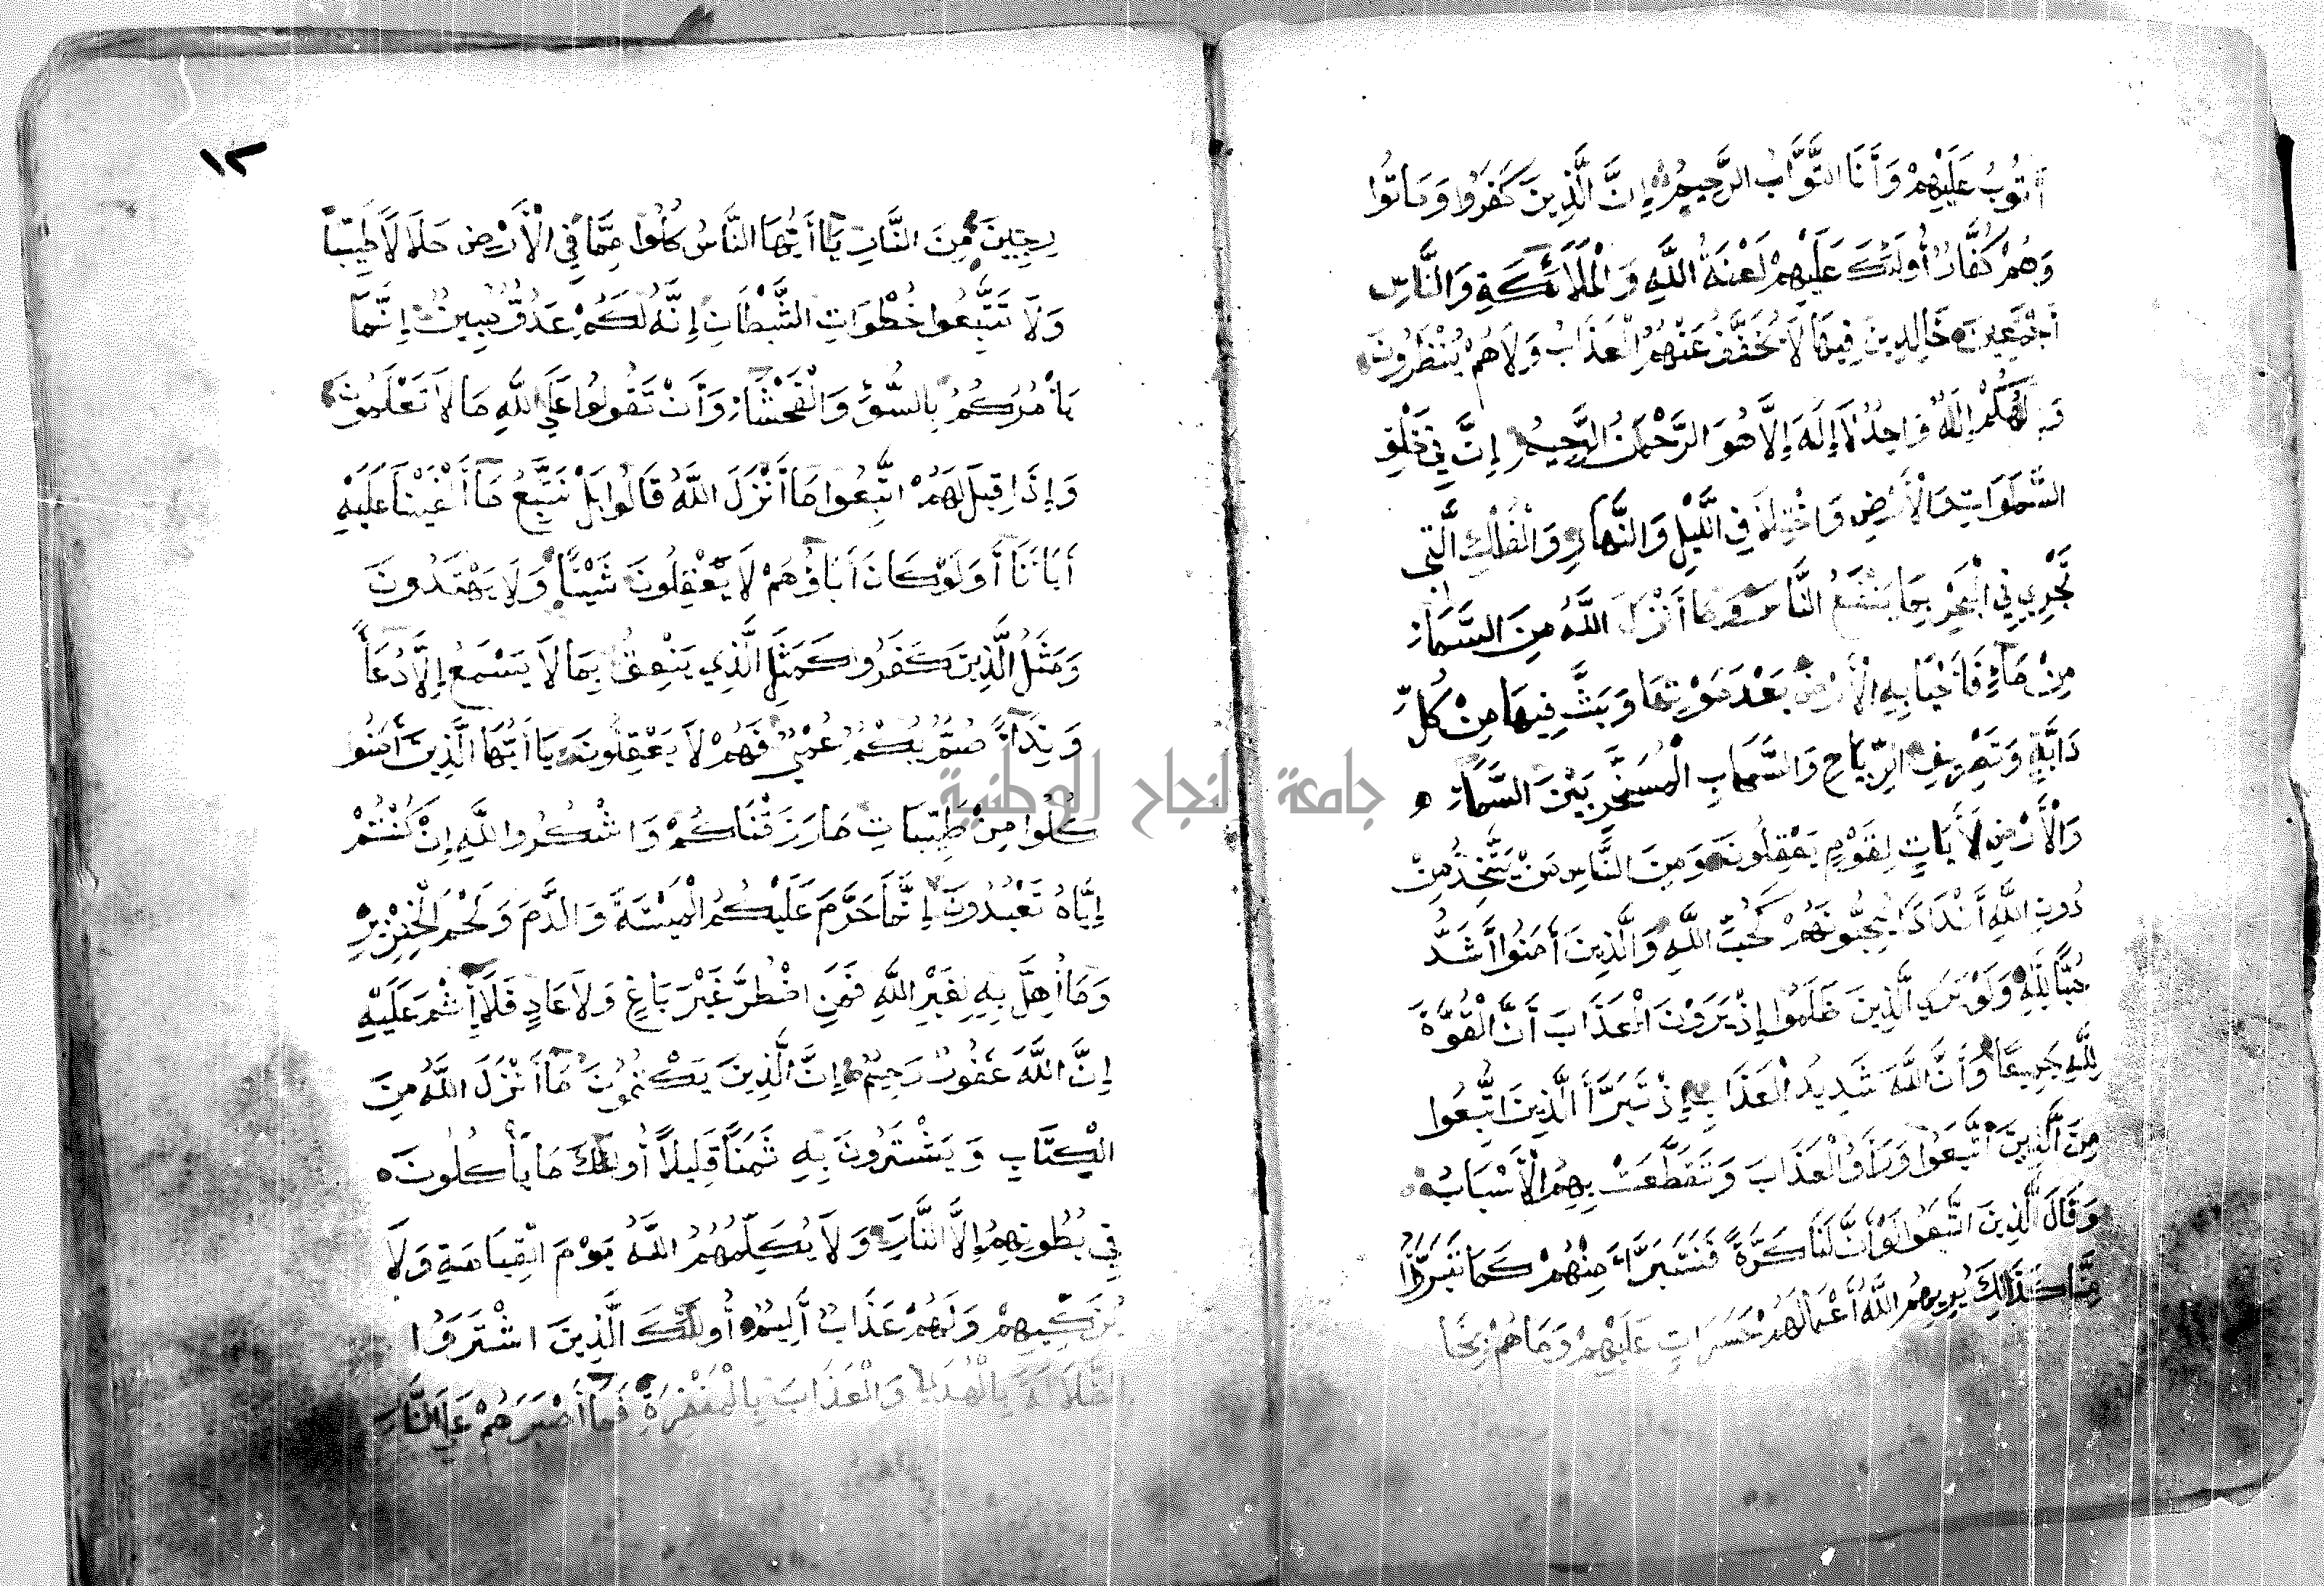 أَتُوبُ عَلَيْهِمْ وَأَنَا التَّوَّابُ الرَّحِيمُ إِنَّ الَّذِينَ كَفَرُوا وَمَاتُوا
وَهُمْ كُفَّارٌ أُولَئِكَ عَلَيْهِمْ لَعْنَةُ اللَّهِ وَالْمَلَائِكَةِ وَالنَّاسِ
أَجْمَعِينَ خَالِدِينَ فِيهَا لَا يُخَفَّفُ عَنْهُمُ الْعَذَابُ وَلَا هُمْ يُنْظَرُونَ
إِلَهُكُمْ إِلَهٌ وَاحِدٌ لَا إِلَهَ إِلَّا هُوَ الرَّحْمَنُ الرَّحِيمُ إِنَّ فِي خَلْقِ
السَّمَوَاتِ وَالْأَرْضِ وَاخْتِلَافِ اللَّيْلِ وَالنَّهَارِ وَالْفُلْكِ الَّتِي
تَجْرِي فِي الْبَحْرِ بِمَا يَنْفَعُ النَّاسَ وَمَا أَنْزَلَ اللَّهُ مِنَ السَّمَاءِ
مِنْ مَاءٍ فَأَحْيَا بِهِ الْأَرْضَ بَعْدَ مَوْتِهَا وَبَثَّ فِيهَا مِنْ كُلِّ
دَابَّةٍ وَتَصْرِيفِ الرِّيَاحِ وَالسَّحَابِ الْمُسَخَّرِ بَيْنَ السَّمَاءِ
وَالْأَرْضِ لَأَيَاتٍ لِقَوْمٍ يَعْقِلُونَ وَمِنَ النَّاسِ مَنْ يَتَّخِذُ مِنْ
دُونِ اللَّهِ أَنْدَادًا يُحِبُّونَهُمْ كَحُبِّ اللَّهِ وَالَّذِينَ أَمَنُوا أَشَدُّ
حُبًّا لِلَّهِ وَلَوْ يَرَى الَّذِينَ ظَلَمُوا إِذْ يَرَوْنَ الْعَذَابَ أَنَّ الْقُوَّةَ
لِلَّهِ جَمِيعًا وَأَنَّ اللَّهَ شَدِيدُ الْعَذَابِ إِذْ تَبَرَّأَ الَّذِينَ اتُّبِعُوا
مِنَ الَّذِينَ اتَّبَعُوا وَرَأَوُا الْعَذَابَ وَتَقَطَّعَتْ بِهِمُ الْأَسْبَابُ
وَقَالَ الَّذِينَ اتَّبَعُوا لَوْ أَنَّ لَنَا كَرَّةً فَنَتَبَرَّأَ مِنْهُمْ كَمَا تَبَرَّؤُا
مِنَّا كَذَلِكَ يُرِيهِمُ اللَّهُ أَعْمَالَهُمْ حَسَرَاتٍ عَلَيْهِمْ وَمَا هُمْ بِخَا
١٢
رِجِينَ مِنَ النَّارِ يَا أَيُّهَا النَّاسُ كُلُوا مِمَّا فِي الْأَرْضِ حَلَالًا طَيِّبًا
وَلَا تَتَّبِعُوا خُطُوَاتِ الشَّيْطَانِ إِنَّهُ لَكُمْ عَدُوٌّ مُبِينٌ إِنَّمَا
يَأْمُرُكُمْ بِالسُّوءِ وَالْفَحْشَاءِ وَأَنْ تَقُولُوا عَلَى اللَّهِ مَا لَا تَعْلَمُونَ
وَإِذَا قِيلَ لَهُمُ اتَّبِعُوا مَا أَنْزَلَ اللَّهُ قَالُوا بَلْ نَتَّبِعُ مَا أَلْفَيْنَا عَلَيْهِ
أَبَاءَنَا أَوَلَوْ كَانَ أَبَاؤُهُمْ لَا يَعْقِلُونَ شَيْئًا وَلَا يَهْتَدُونَ
وَمَثَلُ الَّذِينَ كَفَرُوا كَمَثَلِ الَّذِي يَنْعِقُ بِمَا لَا يَسْمَعُ إِلَّا دُعَاءً
وَنِدَاءً صُمٌّ بُكْمٌ عُمْيٌ فَهُمْ لَا يَعْقِلُونَ يَا أَيُّهَا الَّذِينَ أَمَنُوا
كُلُوا مِنْ طَيِّبَاتِ مَا رَزَقْنَاكُمْ وَاشْكُرُوا لِلَّهِ إِنْ كُنْتُمْ
إِيَّاهُ تَعْبُدُونَ إِنَّمَا حَرَّمَ عَلَيْكُمُ الْمَيْتَةَ وَالدَّمَ وَلَحْمَ الْخِنْزِيرِ
وَمَا أُهِلَّ بِهِ لِغَيْرِ اللَّهِ فَمَنِ اضْطُرَّ غَيْرَ بَاغٍ وَلَا عَادٍ فَلَا إِثْمَ عَلَيْهِ
إِنَّ اللَّهَ غَفُورٌ رَحِيمٌ إِنَّ الَّذِينَ يَكْتُمُونَ مَا أَنْزَلَ اللَّهُ مِنَ
الْكِتَابِ وَيَشْتَرُونَ بِهِ ثَمَنًا قَلِيلًا أُولَئِكَ مَا يَأْكُلُونَ
فِي بُطُونِهِمْ إِلَّا النَّارَ وَلَا يُكَلِّمُهُمُ اللَّهُ يَوْمَ الْقِيَامَةِ وَلَا
يُزَكِّيهِمْ وَلَهُمْ عَذَابٌ أَلِيمٌ أُولَئِكَ الَّذِينَ اشْتَرَوُا
الضَّلَالَةَ بِالْهُدَى وَالْعَذَابَ بِالْمَغْفِرَةِ فَمَا أَصْبَرَهُمْ عَلَى النَّارِ
جامعة النجاح الوطنية